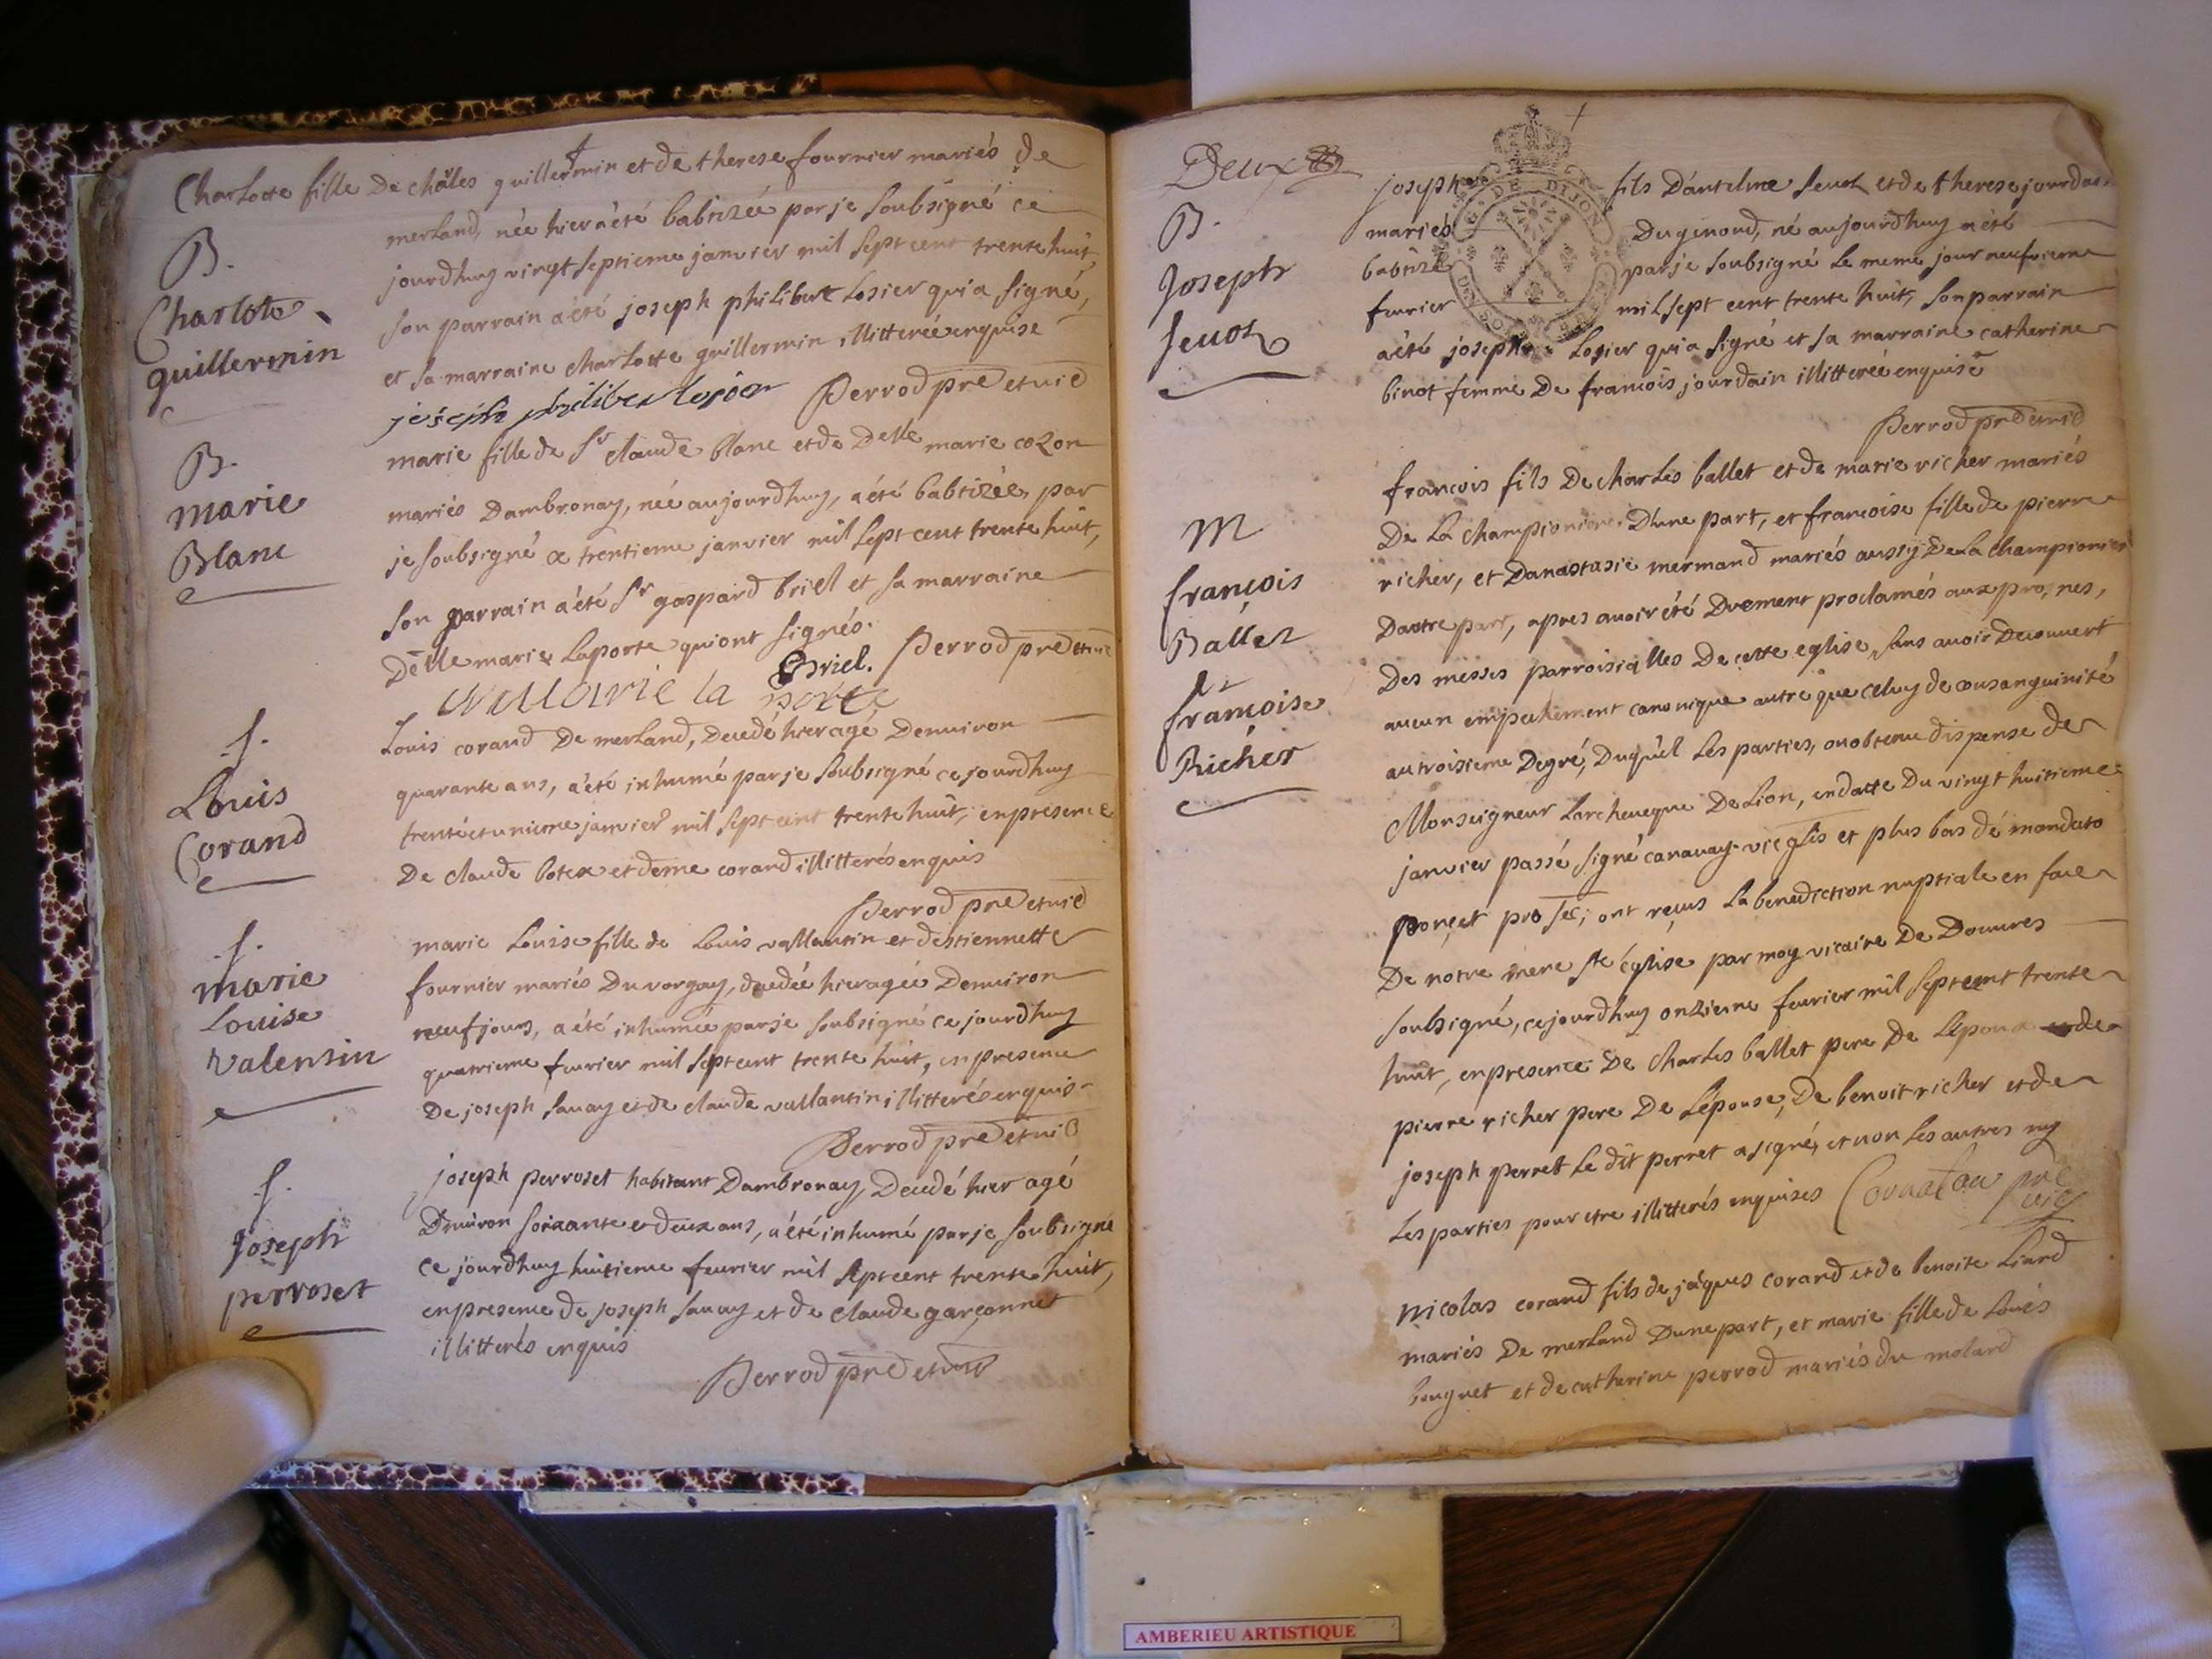 Charlotte fille De châles guillermin et de therese fournier mariés de
B.
Charlote
guillermin
merland, née hier a été babtizée par je soubsigné ce
jourdhuy vingt septieme janvier mil sept cent trente huit,
son parrain a été joseph philibert Losier qui a signé,
et sa marraine charlotte guillermin illitterée enquise
joseph philibert losier Perrod pre et vic
B.
marie
Blanc
marie fille de Sr claude blanc et de Delle marie cozon
mariés Dambronay, née aujourdhuy, a été babtizée par
je soubsigné ce trentieme janvier mil sept cent trente huit,
son parrain a été Sr gaspard briel et sa marraine
Delle marie Laporte qui ont signés.
Briel. Perrod pre et vic
Marie la porte
f.
Louis
Corand
Louis corand De merland, Decedé hier agé Denuiron
quarante ans, a été inhumé par je soubsigné ce jourdhuy
trente et unieme janvier mil sept cent trente huit, en presence
De claude botex et deme corand illitterés enquis
Perrod pre et vic
f.
marie
Louise
Valentin
marie Louise fille de Louis vallantin et destiennette
fournier mariés Du vorgay, decedée hier agée Denuiron
neuf jours, a été inhumée par je soubsigné ce jourdhuy
quatrieme feurier mil sept cent trente huit, en presence
De joseph sauay et de claude vallantin illitterés enquis
Perrod pre et vic
f.
Joseph
perroset
joseph perroset habitant Dambronay, Decedé hier agé
Denuiron soixante et deux ans, a été inhumé par je soubsigné
ce jourdhuy huitieme feurier mil sept cent trente huit,
en presence de joseph sauay et de claude garçonnet
illitterés enquis
Perrod pre et vic
Deux
B.
Joseph
seuoz
joseph fils Dantelme seuoz et de therese jourdain
mariés Du genoud, né aujourdhuy a été
babtizé par je soubsigné le meme jour neufuieme
feurier mil sept cent trente huit, son parrain
a été joseph Losier qui a signé et sa marraine catherine
binot femme De francois jourdain illitterée enquise
G. DE DIJON
Perrod pre et vic
M
françois
Ballet
&
françoise
Richer
francois fils De charles ballet et de marie richer mariés
De La championiere D'une part, et francoise fille de pierre
richer, et Danastasie mermand mariés aussy De La championiere
Dautre part, apres auoir été Duement proclamés aux prones,
Des messes parroisialles De cette eglise, sans auoir Decouuert
aucun empechement canonique autre que celuy de consanguinité
au troisieme Degré, Duquel Les parties, on obtenu dispense de
Monseigneur Larcheueque De Lion, en datte Du vingt huitieme
januier passé signé canauay vic glis et plus bas de mandato
ponçet pro sec; ont reçus la benediction nuptiale en face
De notre mere ste eglise par moy vicaire De Douures
soubsigné, ce jourdhuy onzieme feurier mil sept cent trente
huit, en presence De charles ballet pere De Lepoux et de
pierre richer pere De Lépouse, De benoit richer et de
joseph perret Le dit perret a signé, et non Les autres ny
Les parties pour etre illitterés enquises Cornaton pre
vic
nicolas corand fils de jaques corand et de benoite Liard
mariés De merland Dune part, et marie fille de Louis
bouguet et de catherine perrod mariés du molard
AMBERIEU ARTISTIQUE